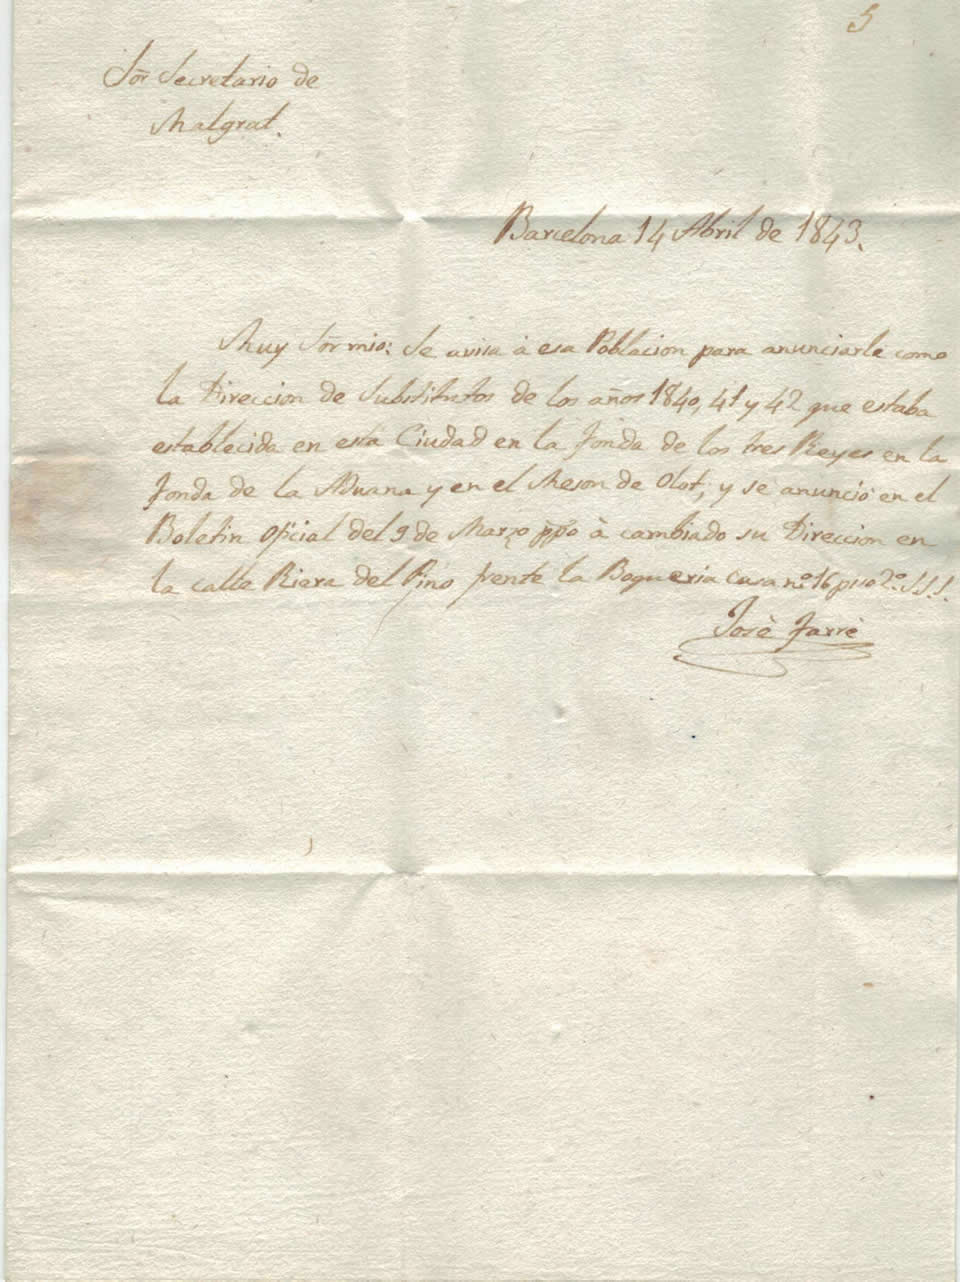 5
Sor Secretario de
Malgrat.
Barcelona 14 Abril de 1843.
Muy Sor mio: Se avisa à esa Poblacion para anunciarle como
la Direccion de Substitutos de los años 1840, 41 y 42 que estaba
establecida en esta Ciudad en la fonda de los tres Reyes en la
fonda de la Aduana y en el Meson de Olot, y se anunció en el
Boletin oficial del 9 de Marzo ppo à cambiado su Direccion en
la calle Riera del Pino frente la Boqueria Casa n.º 16 piso 2.º S.S.S.
Josè Farrè